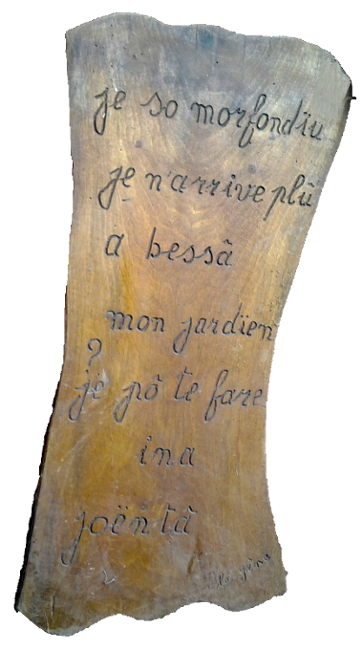 je so morfondïu
je n'arrive plû
a bessâ
mon jardïen
?
je pô te fare
ina
joëñtâ